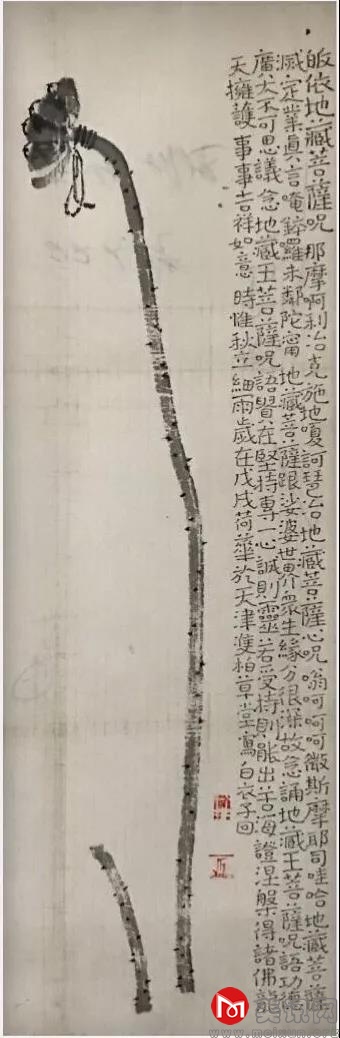 皈依地藏菩薩咒 那摩啊利冶克施地嗄訶琶冶地藏菩薩心咒嗡呵呵呵微斯摩耶司哇哈地藏菩薩
滅定業真言唵鉢囉末鄰陀甯地藏菩薩跟娑婆世界眾生緣分很深故念誦地藏王菩薩咒語功德
廣大不可思議念地藏王菩薩咒語貴在堅持專一心誠則靈若受持則能出苦海證涅槃得諸佛龍
天擁護事事吉祥如意 時惟秋立細雨歲在戊戌荷華於天津雙柏草堂寫白衣子回
www.meiwan.org